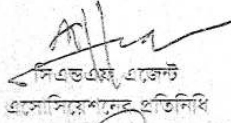 সিএন্ডএফ এজেন্ট
এসোসিয়েশনের প্রতিনিধি